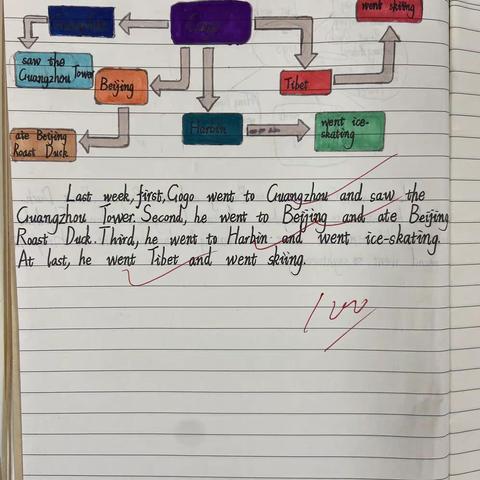 went skiing
saw the
Guangzhou Tower
Beijing
Tibet
Harbin
went ice-
skating
ate Beijing
Roast Duck
Last week, first, Gogo went to Guangzhou and saw the
Guangzhou Tower. Second, he went to Beijing and ate Beijing
Roast Duck. Third, he went to Harbin and went ice-skating.
At last, he went Tibet and went skiing.
100